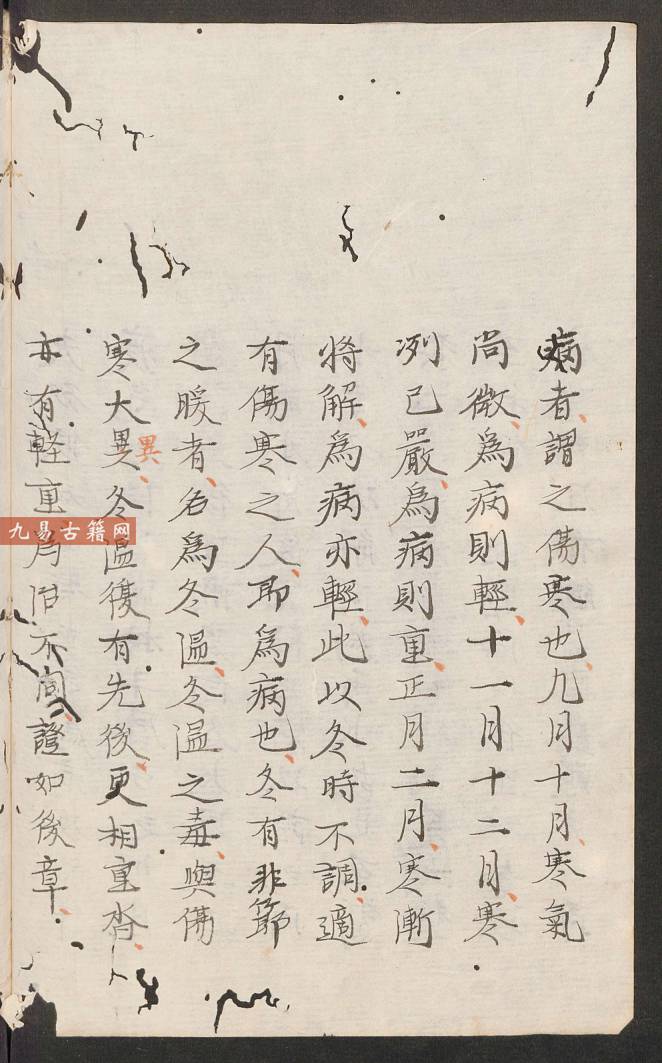 病者謂之傷寒也九月十月寒氣
尚微為病則輕十一月十二月寒
冽已嚴為病則重正月二月寒漸
將解為病亦輕此以冬時不調適
有傷寒之人即為病也冬有非節
之暖者名為冬溫冬溫之毒與傷
寒大異冬溫復有先後更相重沓
異
亦有輕重為治不同證如後章
九易古籍网